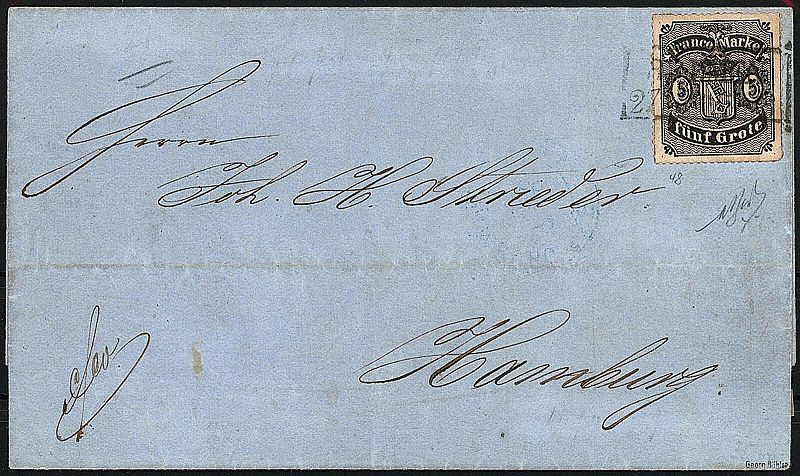 Franco Marke
5 5
fünf Grote
27
Herrn
Joh. H. Strieder.
48
Hamburg.